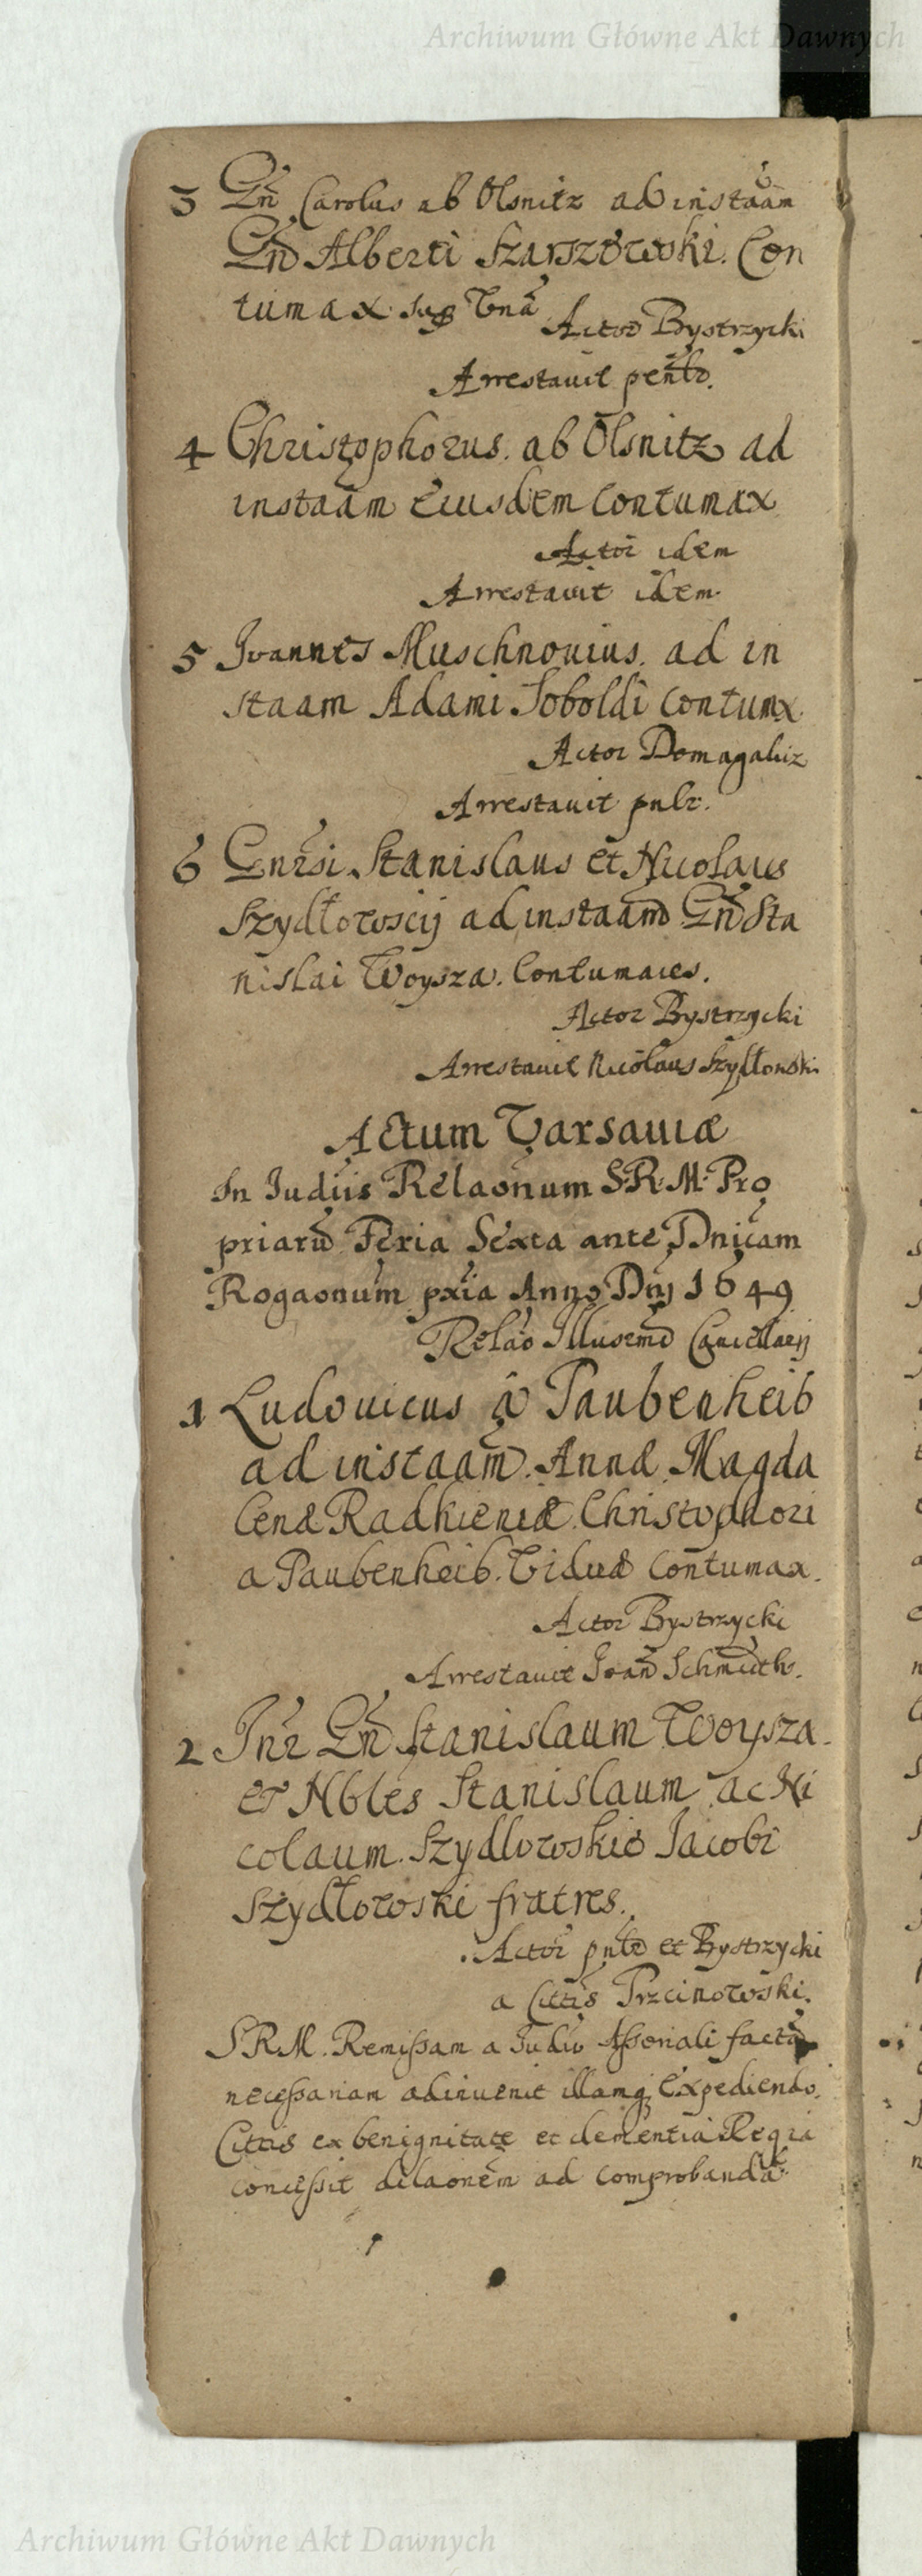 Archiwum Główne Akt Dawnych
3 Gñ Carolus ab Olsnitz ad instaam
Gñ Alberti Szarszowski. Con
tumax sup
Actor Bystrzycki
Arrestavit pentr.
4 Christophorus. ab Olsnitz ad
instaam Eiusdem Contumax
Actor idem
Arrestavit idem
5 Ioannes Muschnovius. ad in
staam Adami Soboldi Contumx
Actor Domagalicz
Arrestavit pnlr.
6 Gnrsi Stanislaus et Nicolaus
Szydłowscij ad instaam Gñ Sta
nislai Woysza. Contumaces.
Actor Bystrzycki
Arrestavit Nicolaus Szydłowski
Actum Varsaviæ
In Iudiis Relaonum S.R.M. Pro
priaru Feria Sexta ante Dnicam
Rogaonum pxia Anno Dnj 1649
Relao Illusmo Cancellarij
1 Ludovicus a Paubenheib
ad instaam. Annæ Magda
lenæ Radkieniæ Christophori
a Paubenheib. Viduæ Contumax.
Actor Bystrzycki
Arrestavit Ioan Schmidth.
2 Inr Gñ Stanislaum Woysza.
et Nbles Stanislaum ac Ni
colaum. Szydlowskie Iacobi
Szydłowski fratres.
Actor pntr et Bystrzycki
a Cittis Trzcinowski.
S R M. Remissam a Iudio Assoriali facta
necessariam adinvenit illamq Expediendo.
Cittis ex benignitate et clementia Regia
concessit dilaonem ad comprobanda
Archiwum Główne Akt Dawnych